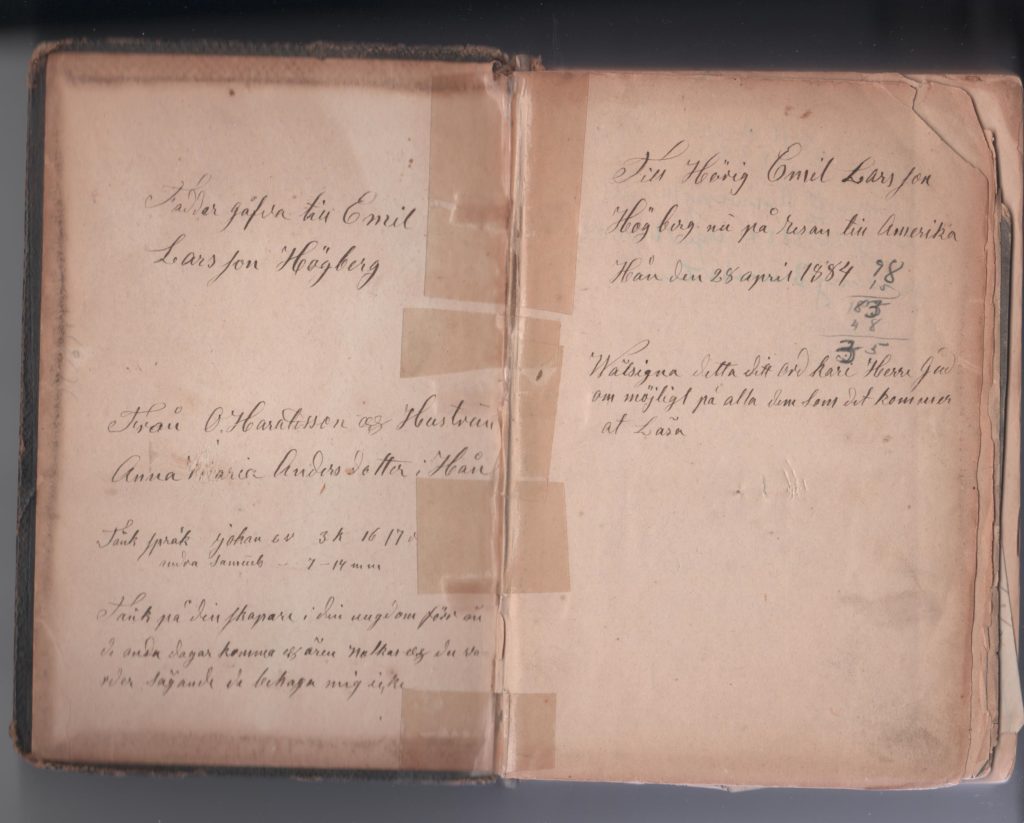 Faddar gåfva till Emil
Larsson Högberg
Från O. Haraldsson och Hustrun
Anna Maria Andersdotter i Hån
Tänk språk johan ev 3 k 16 17 v
andra Samuels 7-14
Tänk på din skapare i din ungdom förr än
de onda dagar komma och åren nalkas och du va
rder sägande de behaga mig icke
Till Hörig Emil Larsson
Högberg nu på resan till Amerika
Hån den 28 april 1884
98
15
83
48
35
Wälsigna detta ditt ord käre Herre Gud
om möjligt på alla dem som det kommer
at Läsa